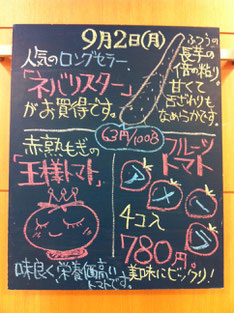 9月2日(月)
人気のロングセラー
「ネバリスター」
がお買得です。
ふつうの
長芋の
倍の粘り
甘くて
舌ざわりも
なめらかです。
63円/100g
赤熟もぎの
「王様トマト」
味良く栄養価高い
トマトです。
フルーツ
トマト
4コ入
780円。
美味にビックリ!